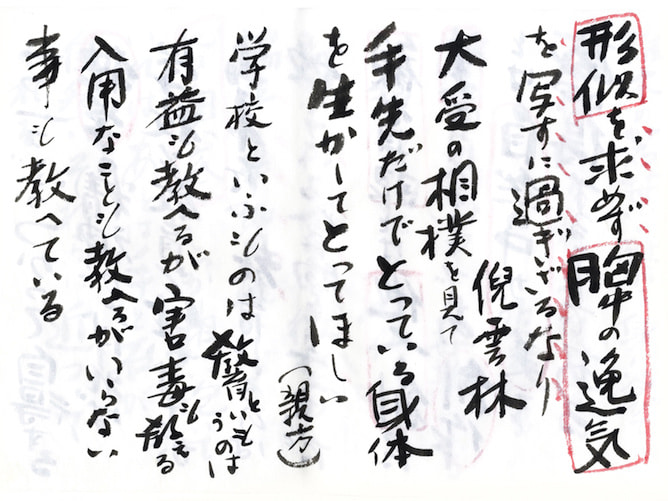 形似を求めず胸中の逸気
を写すに過ぎざるなり
倪雲林
大受の相撲を見て
手先だけでとっている身体
を生かしてとってほしい
(親方)
学校といふものは教育というものは
有益も教へるが害毒も教える
入用なことも教へるがいらない
事も教へている